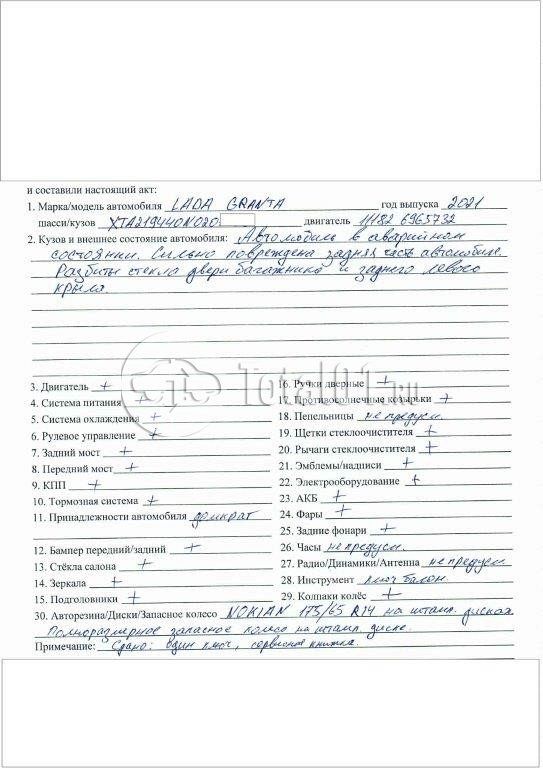 и составили настоящий акт:
1. Марка/модель автомобиля LADA GRANTA год выпуска 2021
шасси/кузов XTA219440N020 двигатель 11182 6965732
2. Кузов и внешнее состояние автомобиля: Автомобиль в аварийном
состоянии. Сильно повреждена задняя часть автомобиля.
Разбиты стекла двери багажника и заднего левого
крыла
Total01.ru
3. Двигатель +
4. Система питания +
5. Система охлаждения +
6. Рулевое управление +
7. Задний мост +
8. Передний мост +
9. КПП +
10. Тормозная система +
11. Принадлежности автомобиля домкрат
12. Бампер передний/задний +
13. Стёкла салона +
14. Зеркала +
15. Подголовники +
16. Ручки дверные +
17. Противосолнечные козырьки +
18. Пепельницы не предусм.
19. Щетки стеклоочистителя +
20. Рычаги стеклоочистителя +
21. Эмблемы/надписи +
22. Электрооборудование +
23. АКБ +
24. Фары +
25. Задние фонари +
26. Часы не предусм.
27. Радио/Динамики/Антенна не предусм
28. Инструмент ключ балон.
29. Колпаки колёс +
30. Авторезина/Диски/Запасное колесо NOKIAN 175/65 R14 на штамп. дисках
Полноразмерное запасное колесо на штамп. диске.
Примечание: Сдано: один ключ, сервисная книжка.